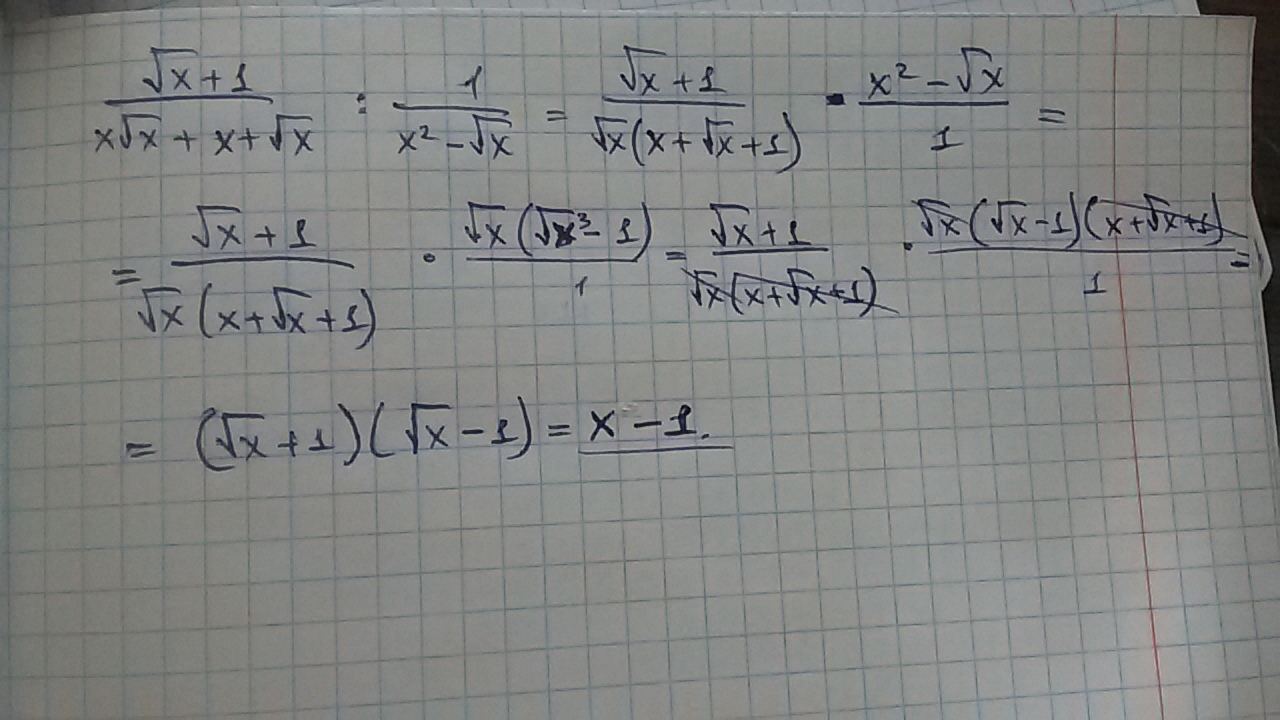 (√x + 1)/(x√x + x + √x) : 1/(x² - √x) = (√x + 1)/(√x(x + √x + 1)) · (x² - √x)/1 =
= (√x + 1)/(√x(x + √x + 1)) · √x(√x³ - 1)/1 = (√x + 1)/(√x(x + √x + 1)) · √x(√x - 1)(x + √x + 1)/1 =
= (√x + 1)(√x - 1) = x - 1.